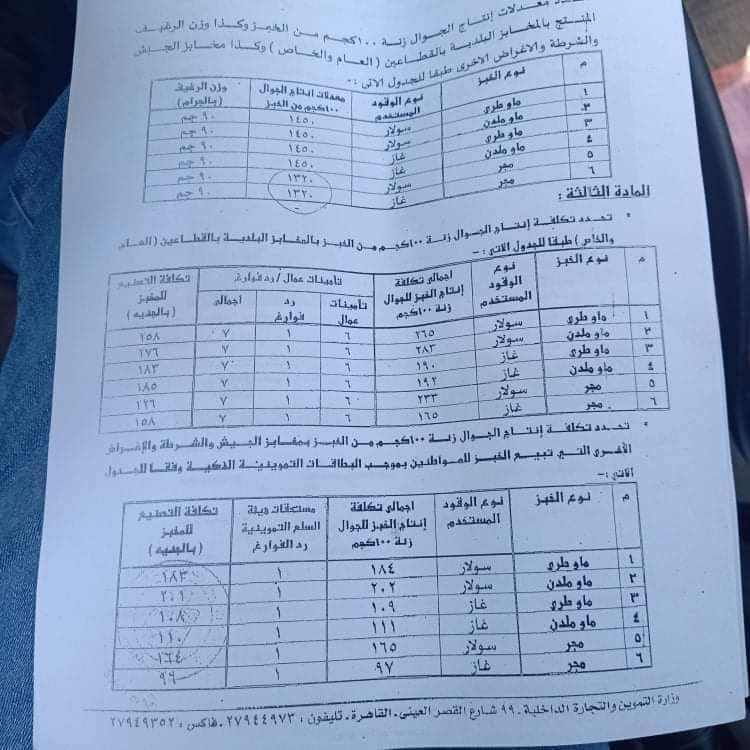 تحدد معدلات إنتاج الجوال زنة ١٠٠ كجم من الخبز وكذا وزن الرغيف
المنتج بالمخابز البلدية بالقطاعين ( العام والخاص ) وكذا مخابز الجيش
والشرطة والاغراض الاخرى طبقا للجدول الاتى :-
م نوع الخبز نوع الوقود المستخدم معدلات إنتاج الجوال ١٠٠ كجم من الخبز وزن الرغيف (بالجرام)
١ ماو طرى سولار ١٤٥٠ ٩٠ جم
٢ ماو ملدن سولار ١٤٥٠ ٩٠ جم
٣ ماو طرى غاز ١٤٥٠ ٩٠ جم
٤ ماو ملدن غاز ١٤٥٠ ٩٠ جم
٥ مجر سولار ١٣٢٠ ٩٠ جم
٦ مجر غاز ١٣٢٠ ٩٠ جم
المادة الثالثة :
• تحدد تكلفة إنتاج الجوال زنة ١٠٠ كجم من الخبز بالمخابز البلدية بالقطاعين ( العام
والخاص ) طبقا للجدول الاتى :-
م نوع الخبز نوع الوقود المستخدم اجمالى تكلفة إنتاج الخبز للجوال زنة ١٠٠ كجم تأمينات عمال / رد فوارغ تكلفة التصنيع للمخبز (بالجنيه)
تأمينات عمال رد فوارغ اجمالى
١ ماو طرى سولار ٢٦٥ ٦ ١ ٧ ٢٥٨
٢ ماو ملدن سولار ٢٨٣ ٦ ١ ٧ ٢٧٦
٣ ماو طرى غاز ١٩٠ ٦ ١ ٧ ١٨٣
٤ ماو ملدن غاز ١٩٢ ٦ ١ ٧ ١٨٥
٥ مجر سولار ٢٣٣ ٦ ١ ٧ ٢٢٦
٦ مجر غاز ١٦٥ ٦ ١ ٧ ١٥٨
• تحدد تكلفة إنتاج الجوال زنة ١٠٠ كجم من الخبز بمخابز الجيش والشرطة والإغراض
الأخرى التى تبيع الخبز للمواطنين بموجب البطاقات التموينية الذكية وفقا للجدول
الاتى :-
م نوع الخبز نوع الوقود المستخدم اجمالى تكلفة إنتاج الخبز للجوال زنة ١٠٠ كجم مستحقات هيئة السلع التموينية رد الفوارغ تكلفة التصنيع للمخبز (بالجنيه)
١ ماو طرى سولار ١٨٤ ١ ١٨٣
٢ ماو ملدن سولار ٢٠٢ ١ ٢٠١
٣ ماو طرى غاز ١٠٩ ١ ١٠٨
٤ ماو ملدن غاز ١١١ ١ ١١٠
٥ مجر سولار ١٦٥ ١ ١٦٤
٦ مجر غاز ٩٧ ١ ٩٦
وزارة التموين والتجارة الداخلية - ٩٩ شارع القصر العينى - القاهرة - تليفون : ٢٧٩٤٤٩٧٣ - فاكس : ٢٧٩٤٩٣٥٢